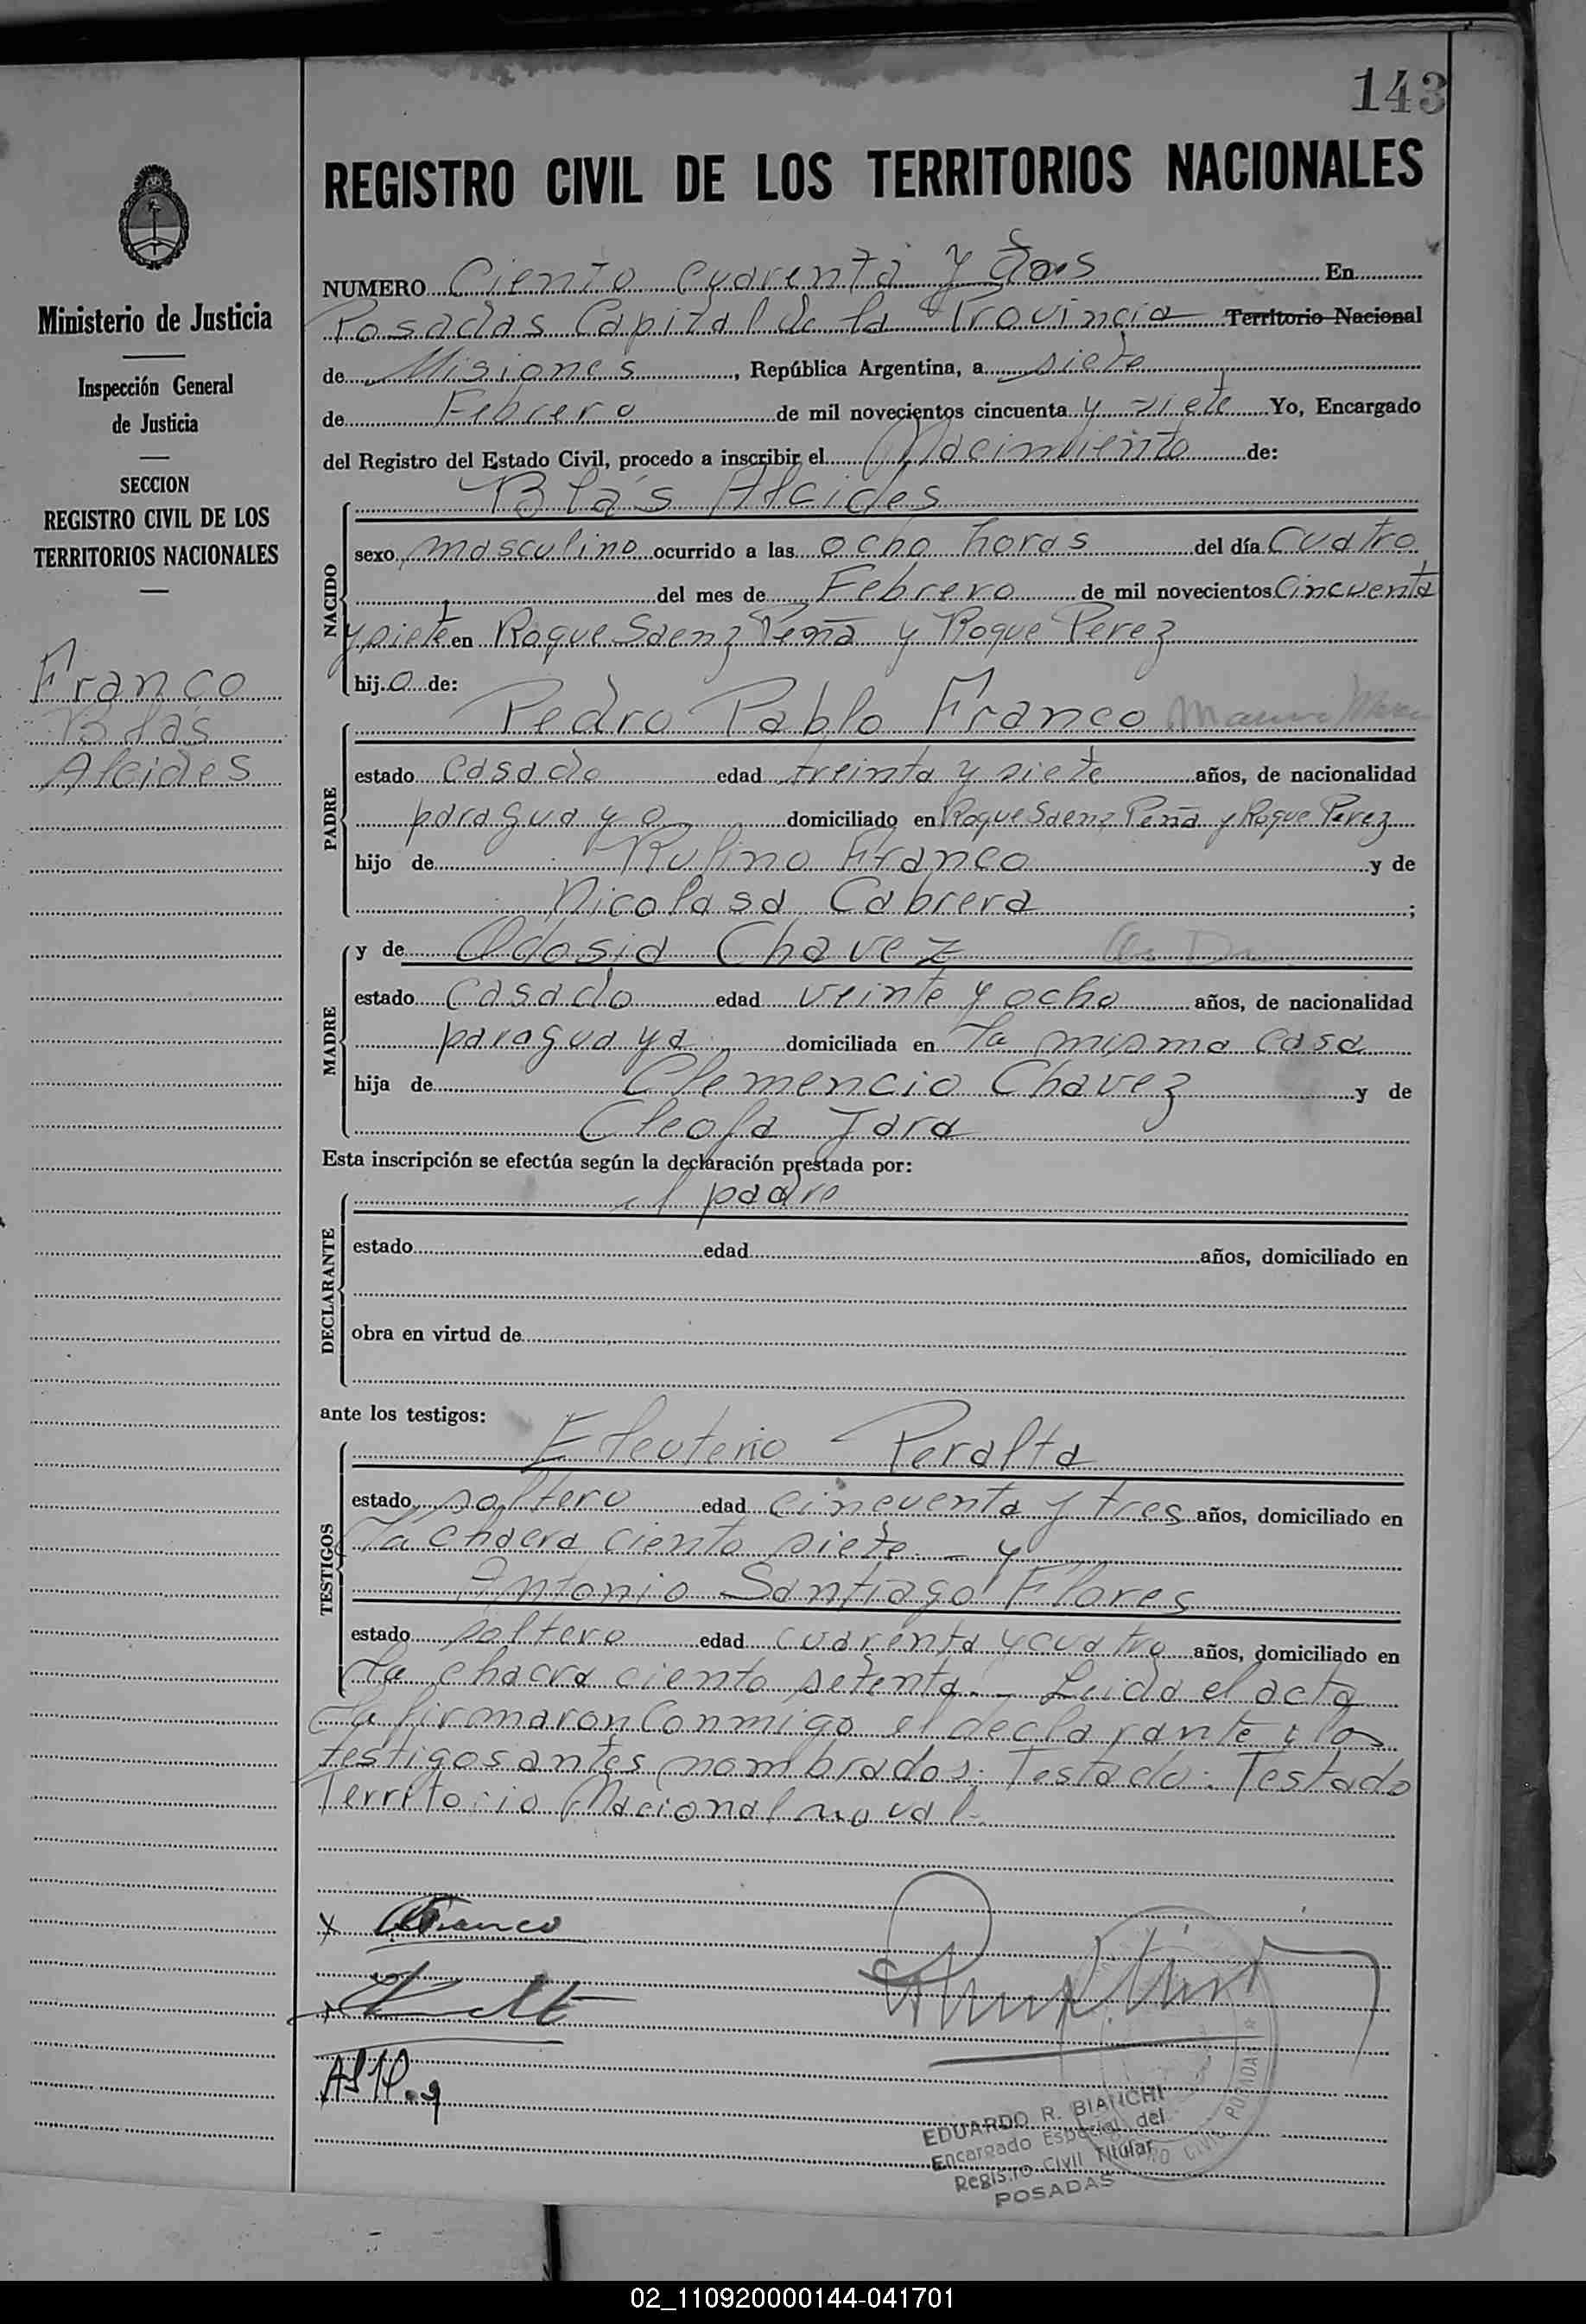 143
REGISTRO CIVIL DE LOS TERRITORIOS NACIONALES
Ministerio de Justicia
Inspección General
de Justicia
SECCION
REGISTRO CIVIL DE LOS
TERRITORIOS NACIONALES
Franco
Blás
Alcides
NUMERO Ciento cuarenta y dos En
Posadas Capital de la Provincia Territorio Nacional
de Misiones, República Argentina, a siete
de Febrero de mil novecientos cincuenta y siete Yo, Encargado
del Registro del Estado Civil, procedo a inscribir el Nacimiento de:
NACIDO
Blás Alcides
sexo masculino ocurrido a las ocho horas del día Cuatro
del mes de Febrero de mil novecientos Cincuenta
y siete en Roque Saenz Peña y Roque Perez
hijo de:
PADRE
Pedro Pablo Franco
estado casado edad treinta y siete años, de nacionalidad
paraguayo domiciliado en Roque Saenz Peña y Roque Perez
hijo de Rufino Franco y de
Nicolasa Cabrera;
MADRE
y de Odosia Chavez
estado casado edad veinte y ocho años, de nacionalidad
paraguaya domiciliada en la misma casa
hija de Clemencio Chavez y de
Cleofa Jara
Esta inscripción se efectúa según la declaración prestada por:
DECLARANTE
el padre
estado edad años, domiciliado en
obra en virtud de
ante los testigos:
TESTIGOS
Eleuterio Peralta
estado soltero edad cincuenta y tres años, domiciliado en
la chacra ciento siete - y
Antonio Santiago Flores
estado soltero edad cuarenta y cuatro años, domiciliado en
la chacra ciento setenta.- Leida el acta
la firmaron conmigo el declarante y los
testigos antes nombrados. Testado: Testado
Territorio Nacional no val-
x Franco
EDUARDO R. BIANCHI
Encargado Especial del
Registro Civil Titular
POSADAS
02_110920000144-041701